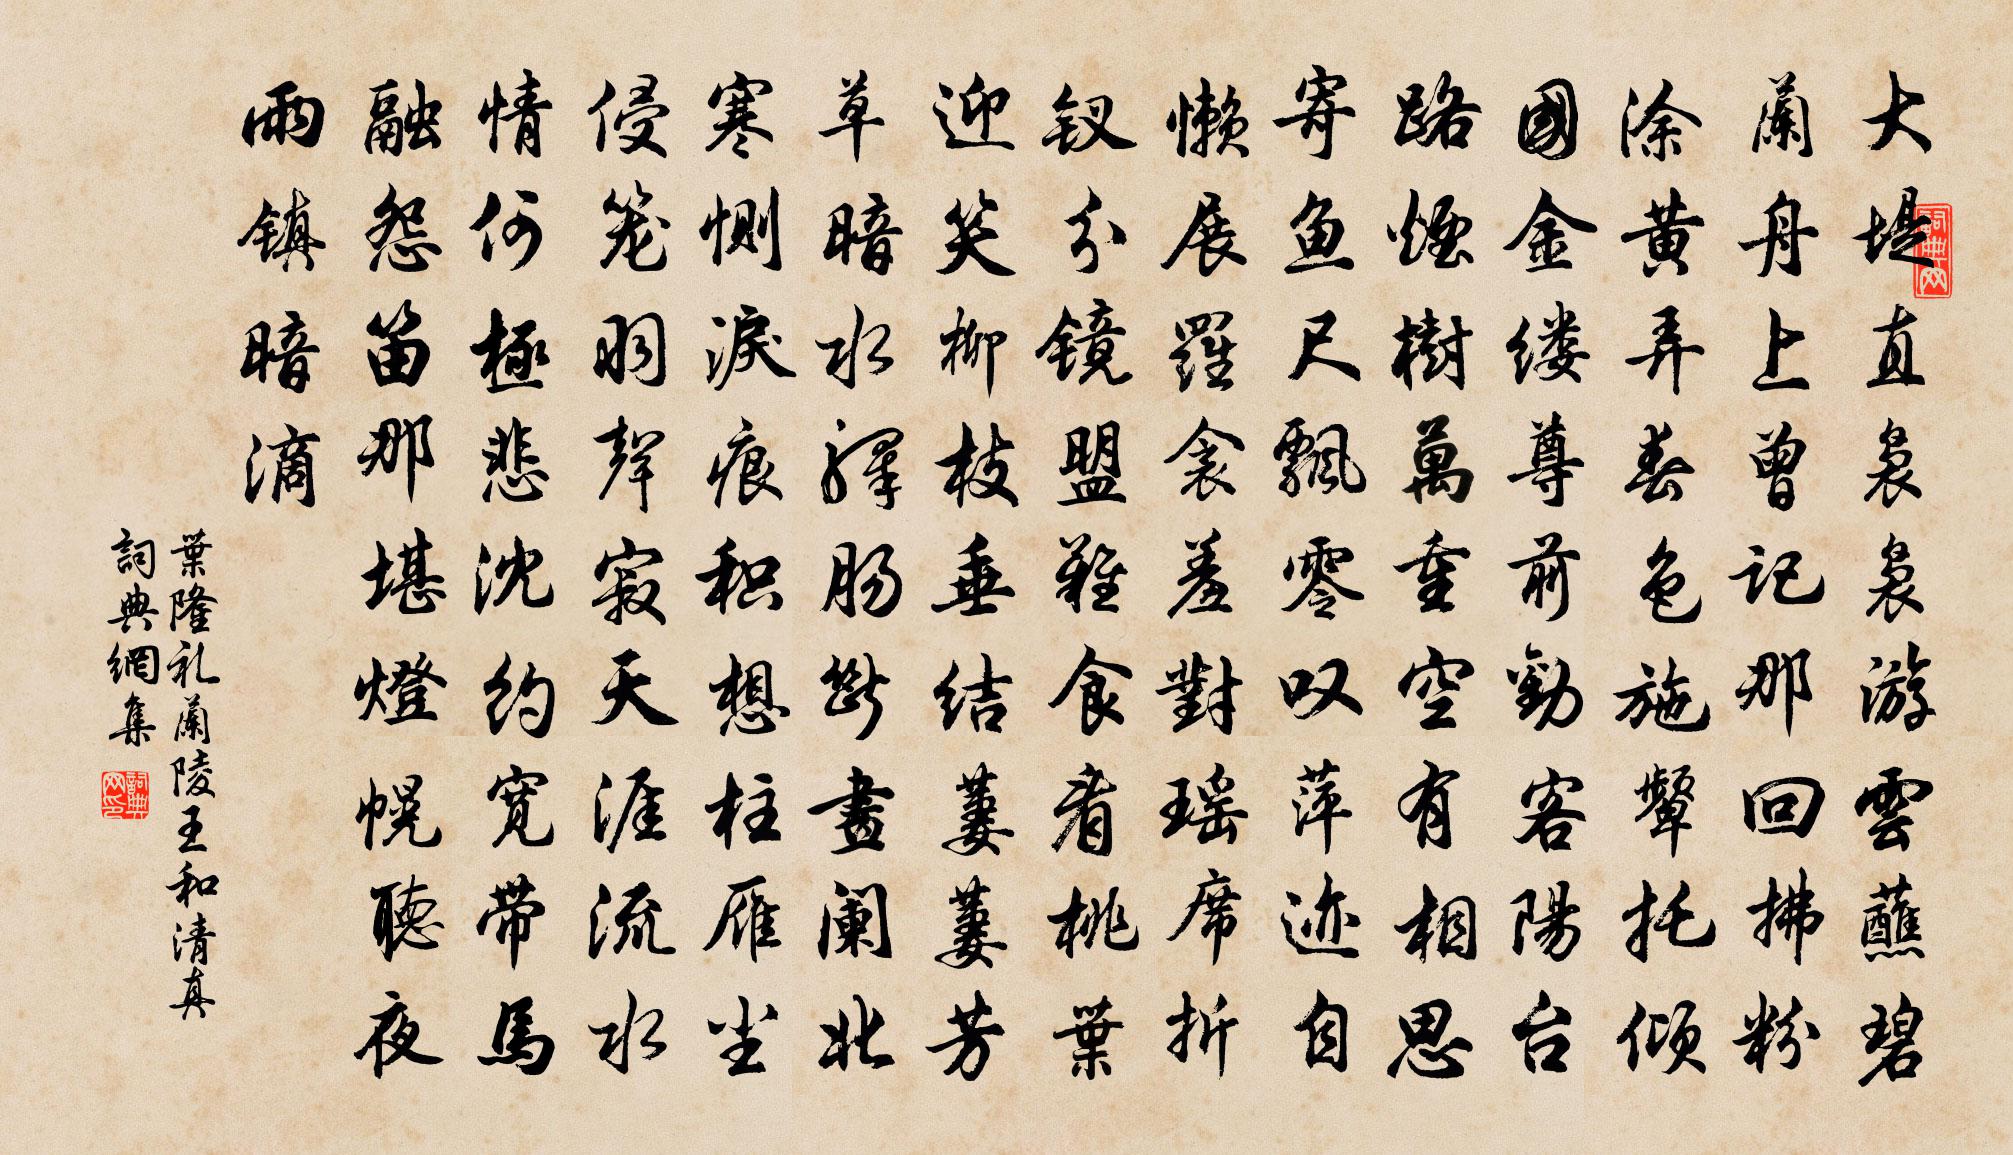 大堤直袅袅游雲蘸碧
蘭舟上曾記那回拂粉
涂黄弄春色施顰托倾
國金缕尊前勸客陽台
路煙樹萬重空有相思
寄鱼尺飄零叹萍迹自
懒展羅衾羞對瑶席折
钗分镜盟難食看桃葉
迎笑柳枝垂结萋萋芳
草暗水驿肠斷畫阑北
寒恻淚痕积想柱雁尘
侵笼羽声寂天涯流水
情何極悲沈约宽带馬
融怨笛那堪燈幌聽夜
雨镇暗滴
葉隆礼蘭陵王和清真
詞典網集
词典网
詞典网印